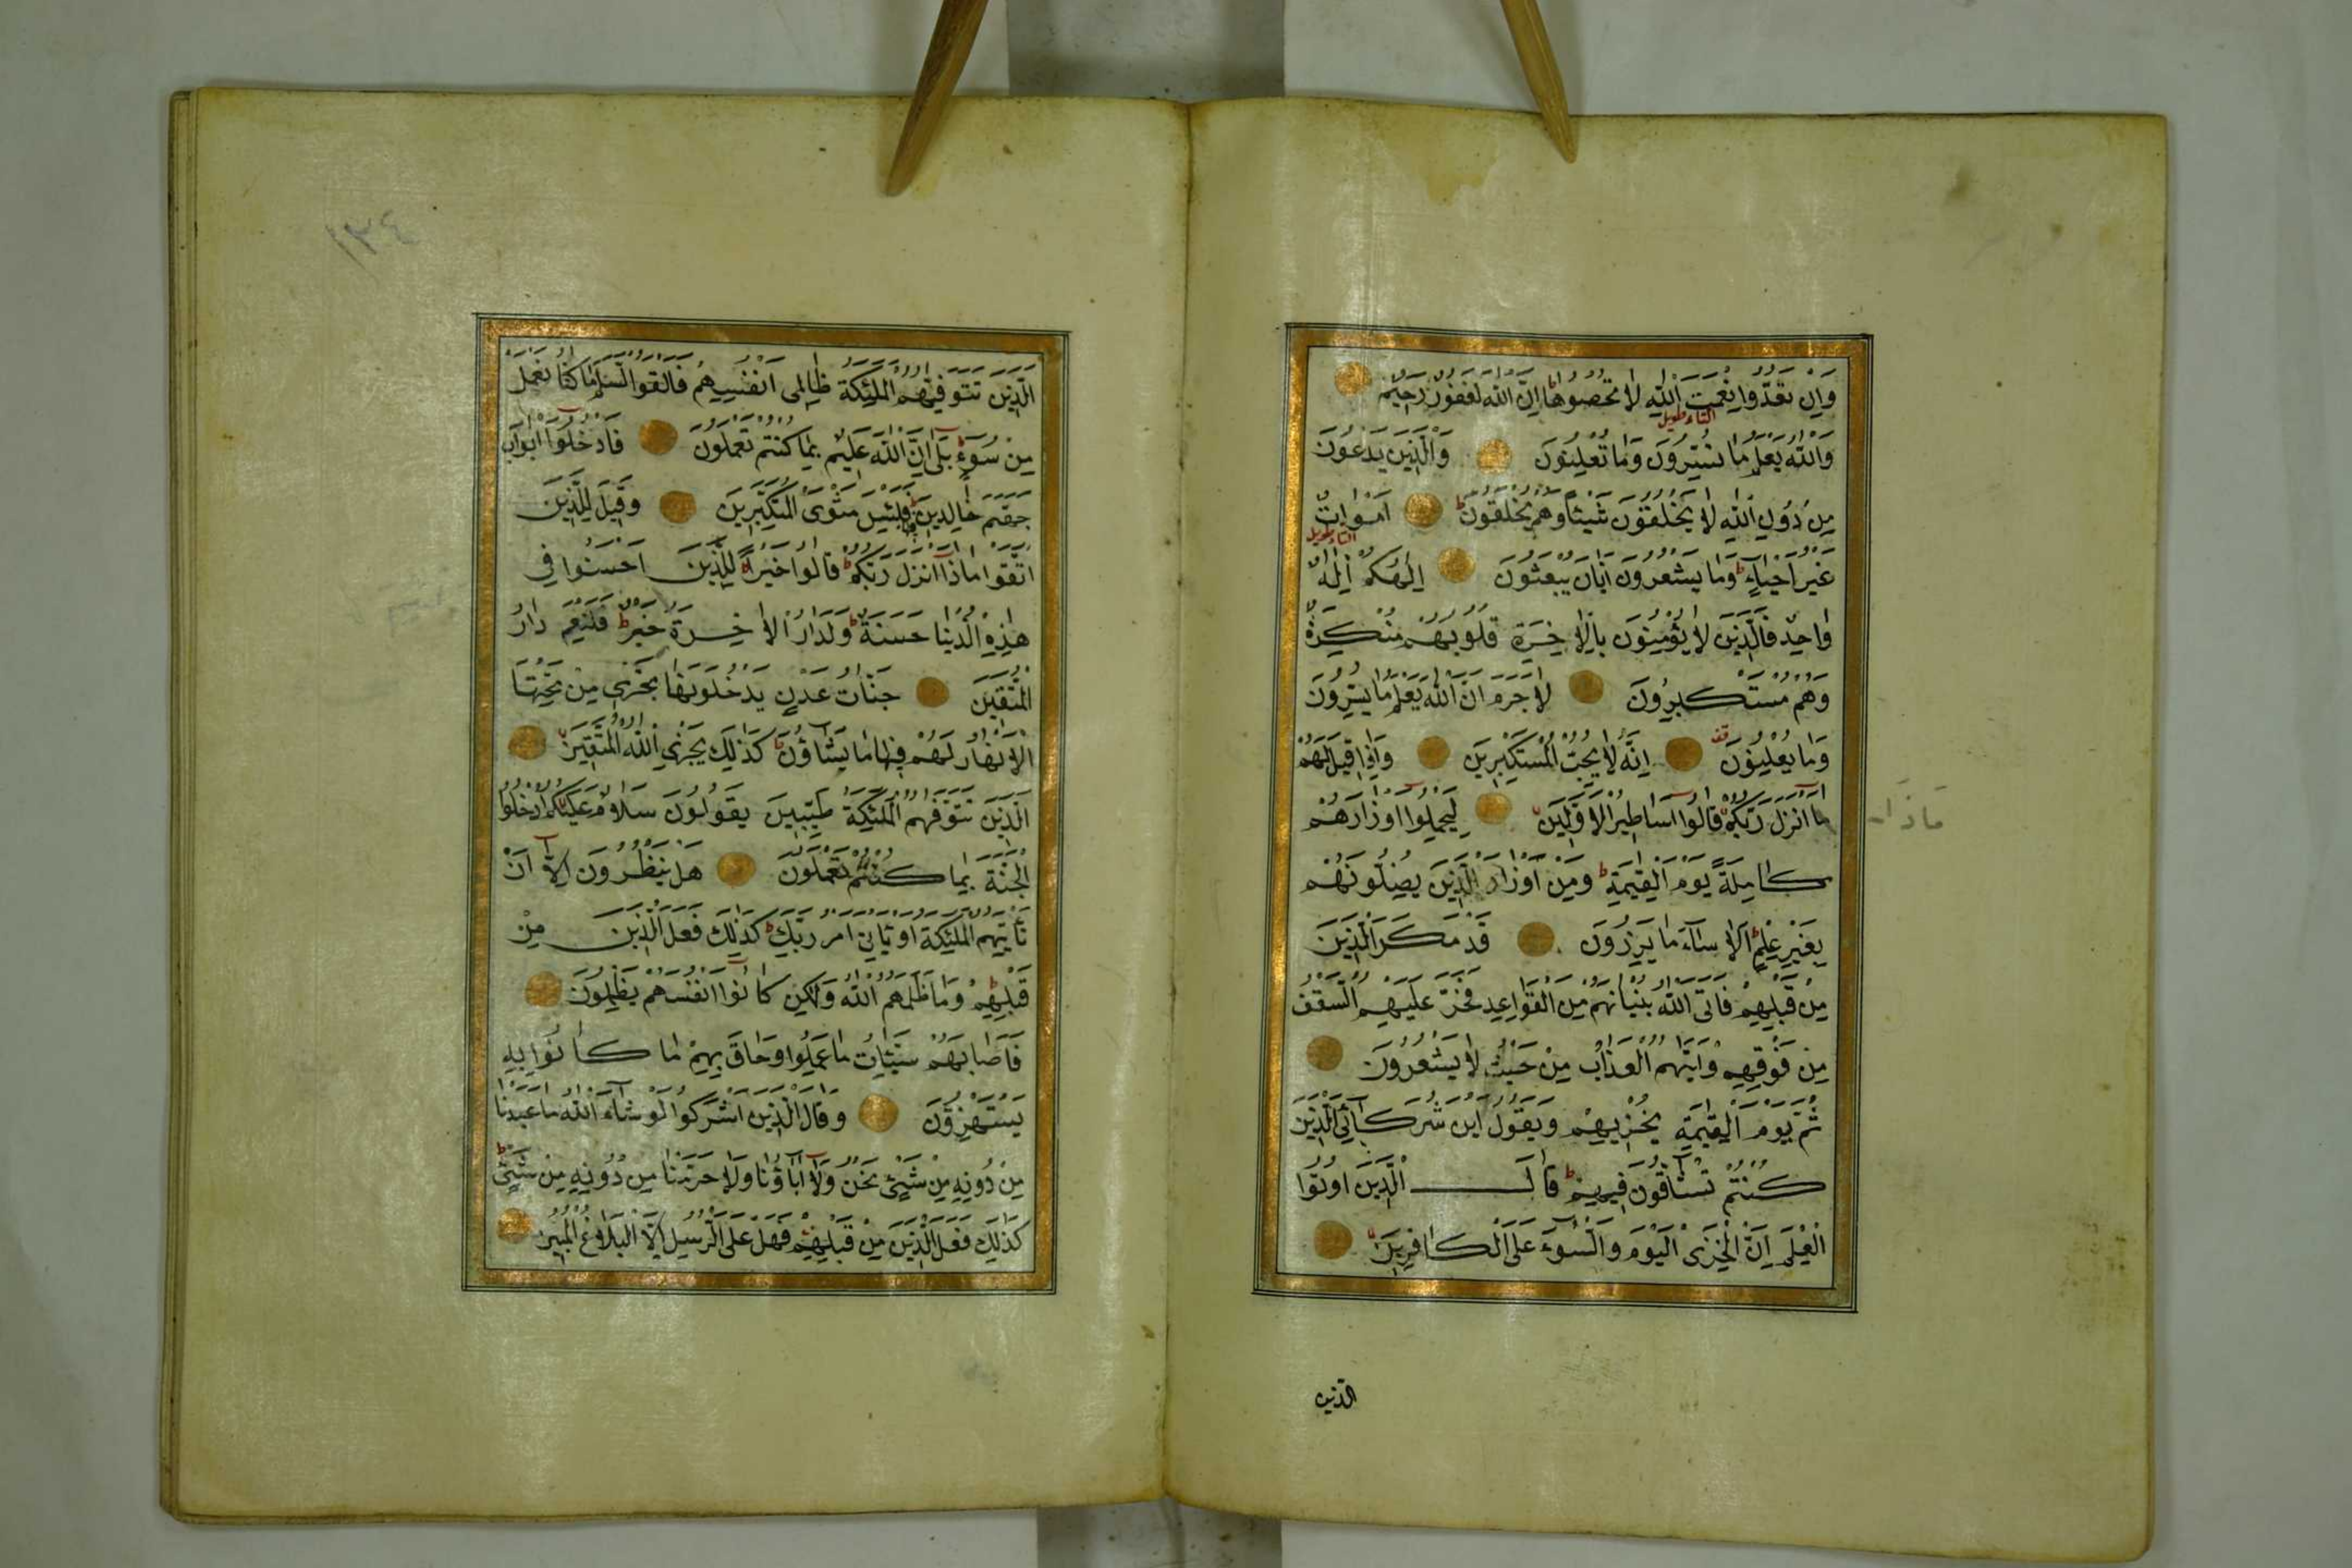 وَاِنْ تَعُدُّوا نِعْمَتَ اللّٰهِ لَا تُحْصُوهَا اِنَّ اللّٰهَ لَغَفُورٌ رَحِيمٌ
التاء طويل
وَاللّٰهُ يَعْلَمُ مَا تُسِرُّونَ وَمَا تُعْلِنُونَ وَالَّذِينَ يَدْعُونَ
مِنْ دُونِ اللّٰهِ لَا يَخْلُقُونَ شَيْئًا وَهُمْ يُخْلَقُونَ ط اَمْوَاتٌ
التاء طويل
غَيْرُ اَحْيَاءٍ ط وَمَا يَشْعُرُونَ اَيَّانَ يُبْعَثُونَ اِلٰهُكُمْ اِلٰهٌ
وَاحِدٌ فَالَّذِينَ لَا يُؤْمِنُونَ بِالْاٰخِرَةِ قُلُوبُهُمْ مُنْكِرَةٌ
وَهُمْ مُسْتَكْبِرُونَ لَا جَرَمَ اَنَّ اللّٰهَ يَعْلَمُ مَا يُسِرُّونَ
وَمَا يُعْلِنُونَ قف اِنَّهُ لَا يُحِبُّ الْمُسْتَكْبِرِينَ وَاِذَا قِيلَ لَهُمْ
مَا اَنْزَلَ رَبُّكُمْ قَالُوا اَسَاطِيرُ الْاَوَّلِينَ لِيَحْمِلُوا اَوْزَارَهُمْ
مَاذَا
كَامِلَةً يَوْمَ الْقِيٰمَةِ ط وَمِنْ اَوْزَارِ الَّذِينَ يُضِلُّونَهُمْ
بِغَيْرِ عِلْمٍ ط اَلَا سَاءَ مَا يَزِرُونَ قَدْ مَكَرَ الَّذِينَ
مِنْ قَبْلِهِمْ فَاَتَى اللّٰهُ بُنْيَانَهُمْ مِنَ الْقَوَاعِدِ فَخَرَّ عَلَيْهِمُ السَّقْفُ
مِنْ فَوْقِهِمْ وَاَتٰيهُمُ الْعَذَابُ مِنْ حَيْثُ لَا يَشْعُرُونَ
ثُمَّ يَوْمَ الْقِيٰمَةِ يُخْزِيهِمْ وَيَقُولُ اَيْنَ شُرَكَائِيَ الَّذِينَ
كُنْتُمْ تُشَاقُّونَ فِيهِمْ ط قَالَ الَّذِينَ اُوتُوا
الْعِلْمَ اِنَّ الْخِزْيَ الْيَوْمَ وَالسُّوءَ عَلَى الْكَافِرِينَ
الذين
١٣٤
الَّذِينَ تَتَوَفّٰيهُمُ الْمَلٰئِكَةُ ظَالِمِي اَنْفُسِهِمْ فَاَلْقَوُا السَّلَمَ مَا كُنَّا نَعْمَلُ
مِنْ سُوءٍ ط بَلٰى اِنَّ اللّٰهَ عَلِيمٌ بِمَا كُنْتُمْ تَعْمَلُونَ فَادْخُلُوا اَبْوَابَ
جَهَنَّمَ خَالِدِينَ فِيهَا فَلَبِئْسَ مَثْوَى الْمُتَكَبِّرِينَ وَقِيلَ لِلَّذِينَ
اتَّقَوْا مَاذَا اَنْزَلَ رَبُّكُمْ ط قَالُوا خَيْرًا ط لِلَّذِينَ اَحْسَنُوا فِي
هٰذِهِ الدُّنْيَا حَسَنَةٌ ط وَلَدَارُ الْاٰخِرَةِ خَيْرٌ ط وَلَنِعْمَ دَارُ
الْمُتَّقِينَ جَنَّاتُ عَدْنٍ يَدْخُلُونَهَا تَجْرِي مِنْ تَحْتِهَا
الْاَنْهَارُ لَهُمْ فِيهَا مَا يَشَاؤُنَ ط كَذٰلِكَ يَجْزِي اللّٰهُ الْمُتَّقِينَ
الَّذِينَ تَتَوَفّٰهُمُ الْمَلٰئِكَةُ طَيِّبِينَ يَقُولُونَ سَلَامٌ عَلَيْكُمُ ادْخُلُوا
الْجَنَّةَ بِمَا كُنْتُمْ تَعْمَلُونَ هَلْ يَنْظُرُونَ اِلَّا اَنْ
تَأْتِيَهُمُ الْمَلٰئِكَةُ اَوْ يَأْتِيَ اَمْرُ رَبِّكَ ط كَذٰلِكَ فَعَلَ الَّذِينَ مِنْ
قَبْلِهِمْ ط وَمَا ظَلَمَهُمُ اللّٰهُ وَلٰكِنْ كَانُوا اَنْفُسَهُمْ يَظْلِمُونَ
فَاَصَابَهُمْ سَيِّئَاتُ مَا عَمِلُوا وَحَاقَ بِهِمْ مَا كَانُوا بِهِ
يَسْتَهْزِؤُنَ وَقَالَ الَّذِينَ اَشْرَكُوا لَوْ شَاءَ اللّٰهُ مَا عَبَدْنَا
مِنْ دُونِهِ مِنْ شَيْءٍ نَحْنُ وَلَا اٰبَاؤُنَا وَلَا حَرَّمْنَا مِنْ دُونِهِ مِنْ شَيْءٍ ط
كَذٰلِكَ فَعَلَ الَّذِينَ مِنْ قَبْلِهِمْ فَهَلْ عَلَى الرُّسُلِ اِلَّا الْبَلَاغُ الْمُبِينُ